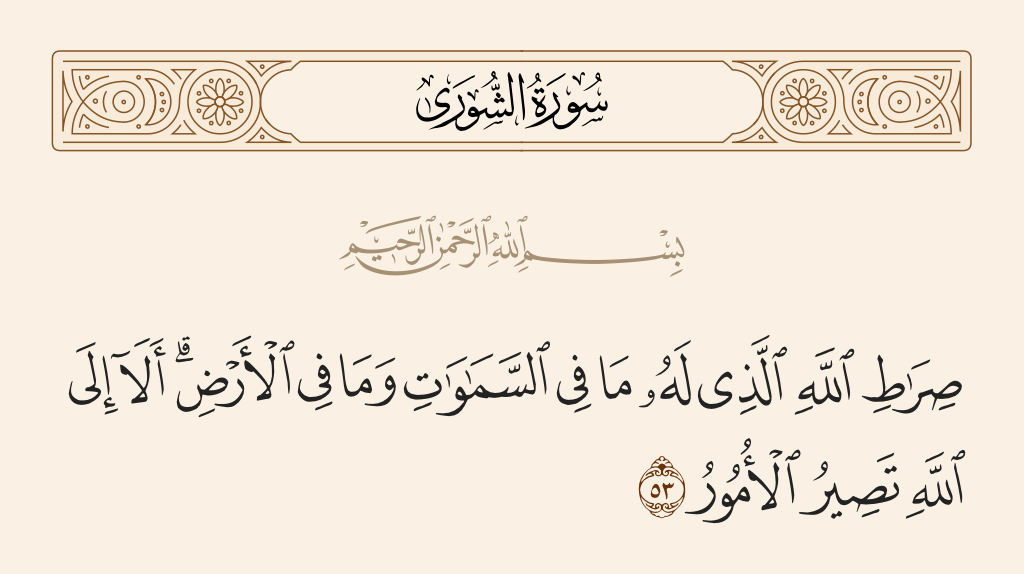 سُورَةُ الشُّورَىٰ
بِسْمِ ٱللَّهِ ٱلرَّحْمَٰنِ ٱلرَّحِيمِ
صِرَٰطِ ٱللَّهِ ٱلَّذِى لَهُۥ مَا فِى ٱلسَّمَٰوَٰتِ وَمَا فِى ٱلْأَرْضِ ۗ أَلَآ إِلَى
ٱللَّهِ تَصِيرُ ٱلْأُمُورُ ٥٣